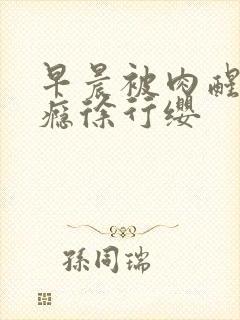 早晨被肉醒
瘾徐行缨
孫同瑞